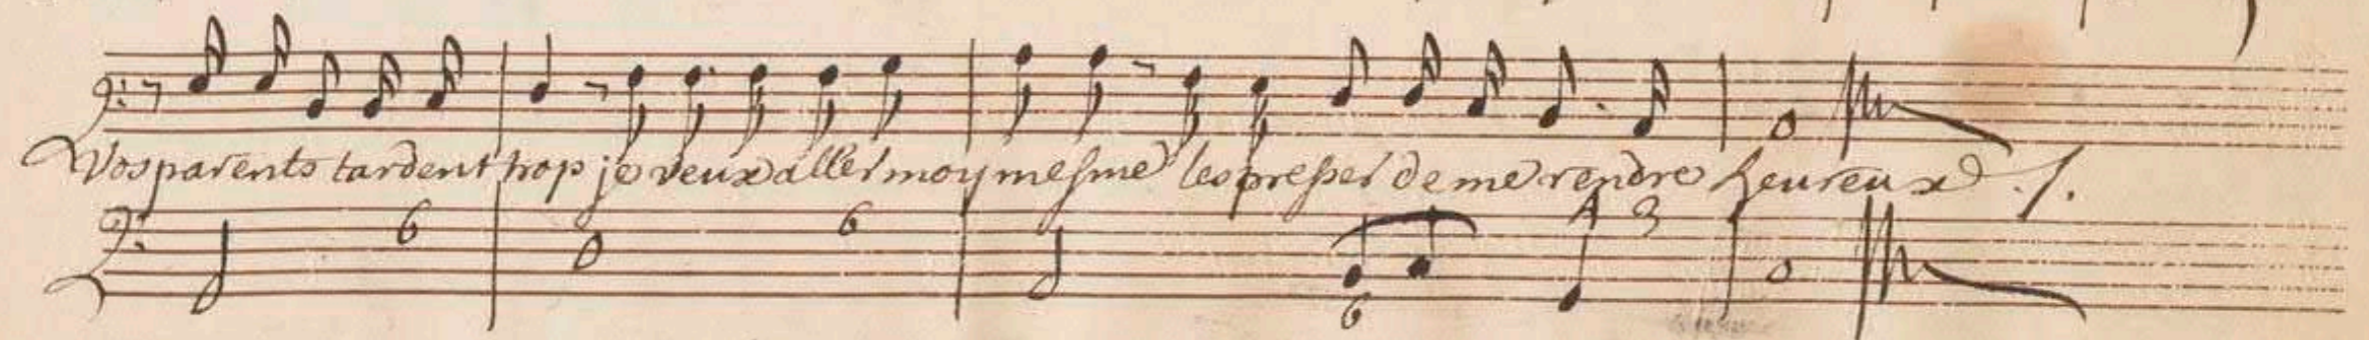 Vos parents tardent trop je veux aller moy mesme les presser de me rendre heureux ./.
6 6 6 4 3